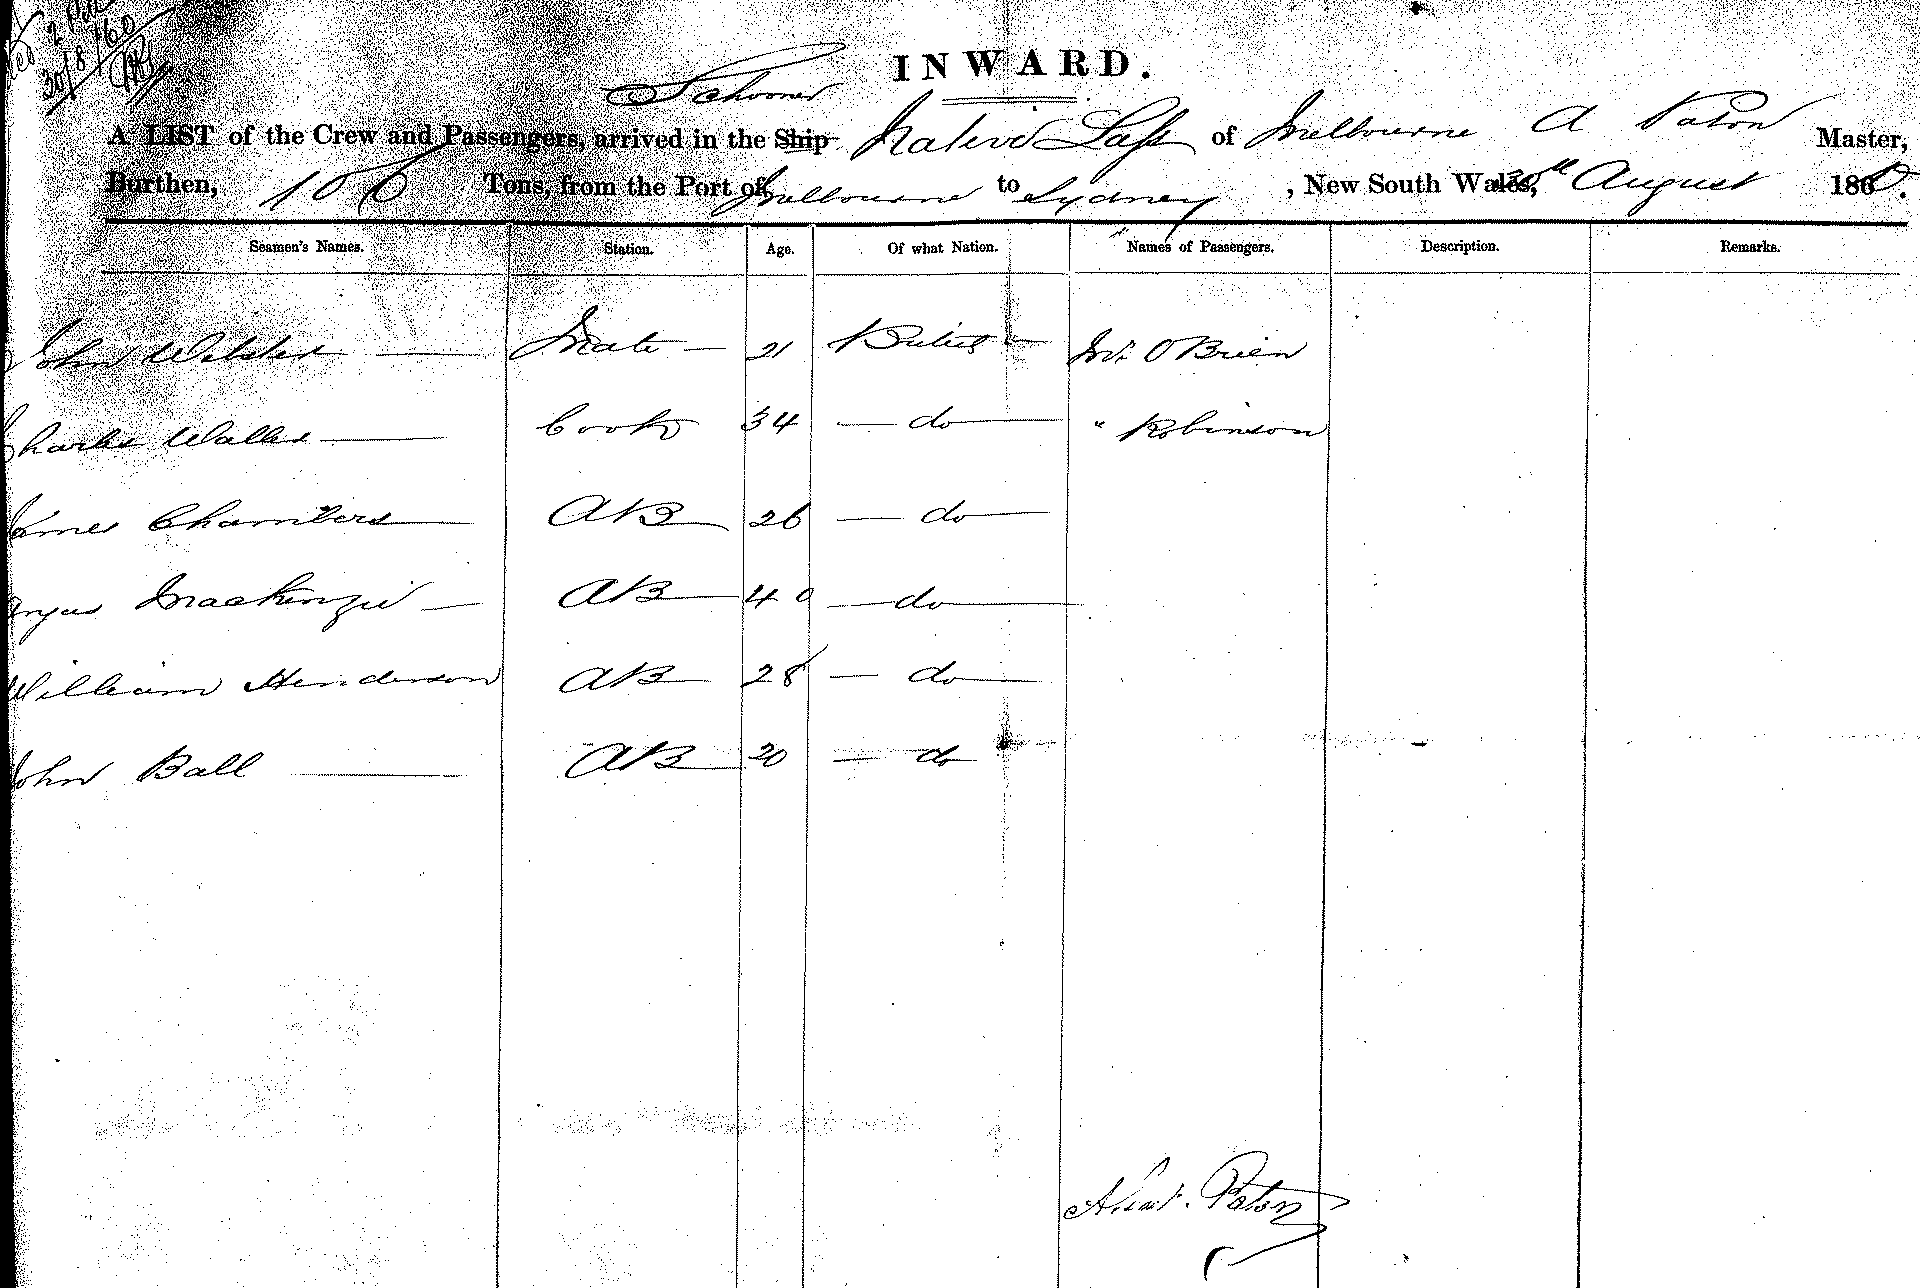 2 PM
30/8/60
INWARD.
Schooner
A LIST of the Crew and Passengers, arrived in the Ship Native Lass of Melbourne A Paton Master,
Burthen, 106 Tons, from the Port of Melbourne to Sydney, New South Wales, 30th August 1860.
Seamen's Names. Station. Age. Of what Nation. Names of Passengers. Description. Remarks.
John Webster Mate 21 British Mr. O'Brien
Charles Waller Cook 34 do " Robinson
James Chambers AB 26 do
Angus Mackenzie AB 40 do
William Henderson AB 28 do
John Ball AB 20 do
Paton